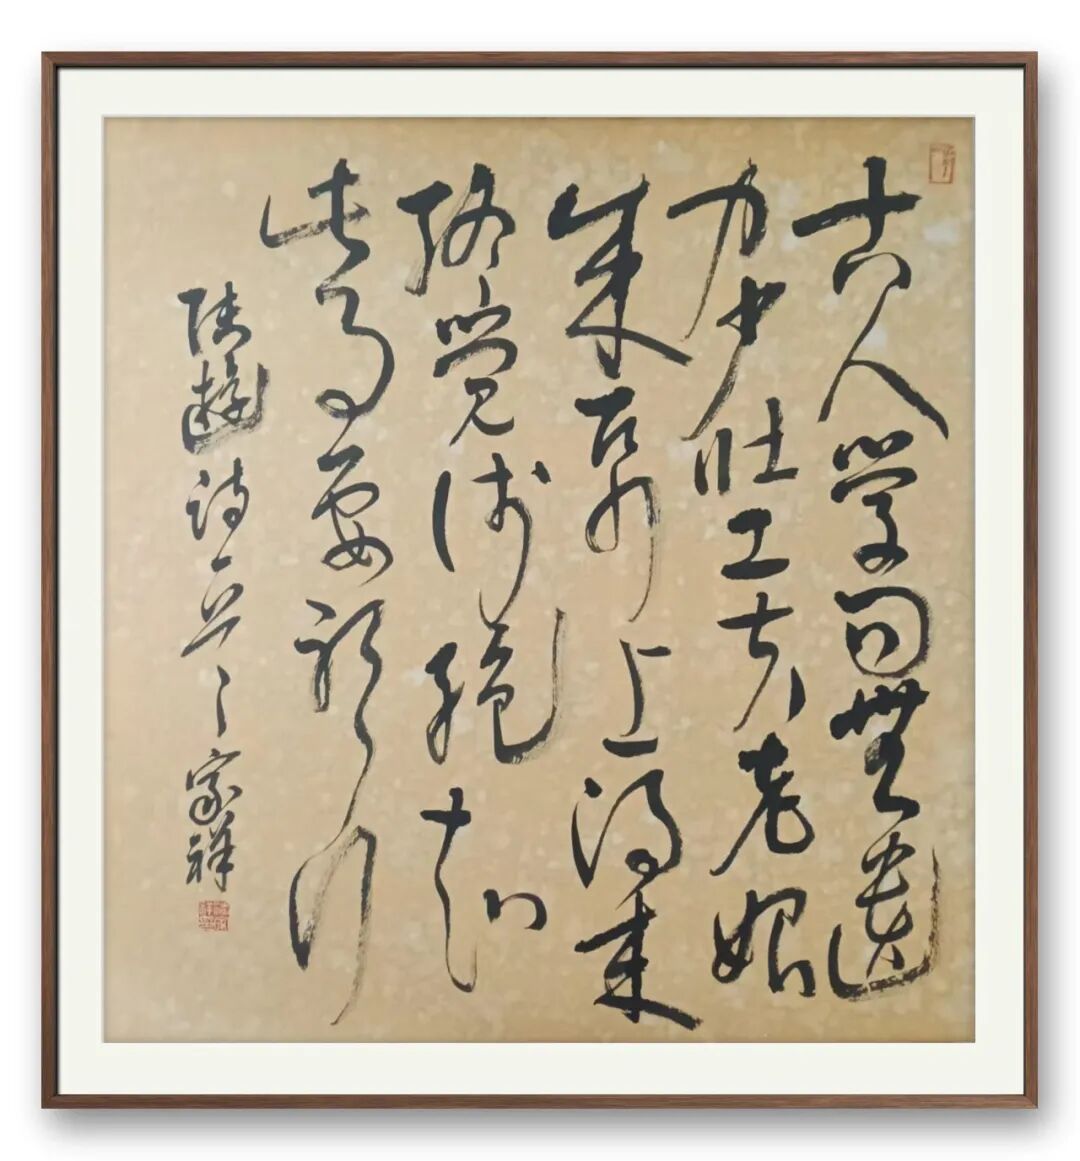 古人学问無遗
力少壮工夫老始
成帋上得来
终觉浅绝知
此事要躬行
陆遊诗一首 家祥